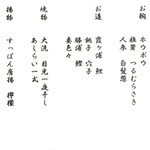 お椀
ホウボウ
椎茸 つるむらさき
人参 白髪葱
お造
霞ヶ浦 鯉
銚子 穴子
勝浦 鰹
妻色々
焼物
大洗 目光一夜干し
あしらい一式
揚物
すっぽん唐揚 檸檬